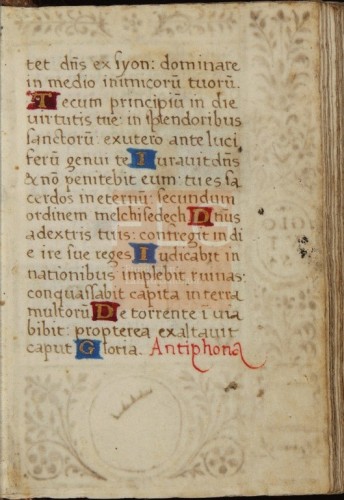 tet dñs ex syon: dominare
in medio inimicorũ tuorũ.
Tecum principiũ in die
virtutis tue: in splendoribus
sanctorũ: ex utero ante luci
ferũ genui te Iuravit dñs
& nõ penitebit eum: tu es sa
cerdos in eternũ: secundum
ordinem melchisedech Dñus
a dextris tuis: confregit in di
e ire sue reges Iudicabit in
nationibus implebit ruinas:
conquassabit capita in terra
multorũ De torrente ĩ via
bibit: propterea exaltavit
caput Gloria. Antiphona